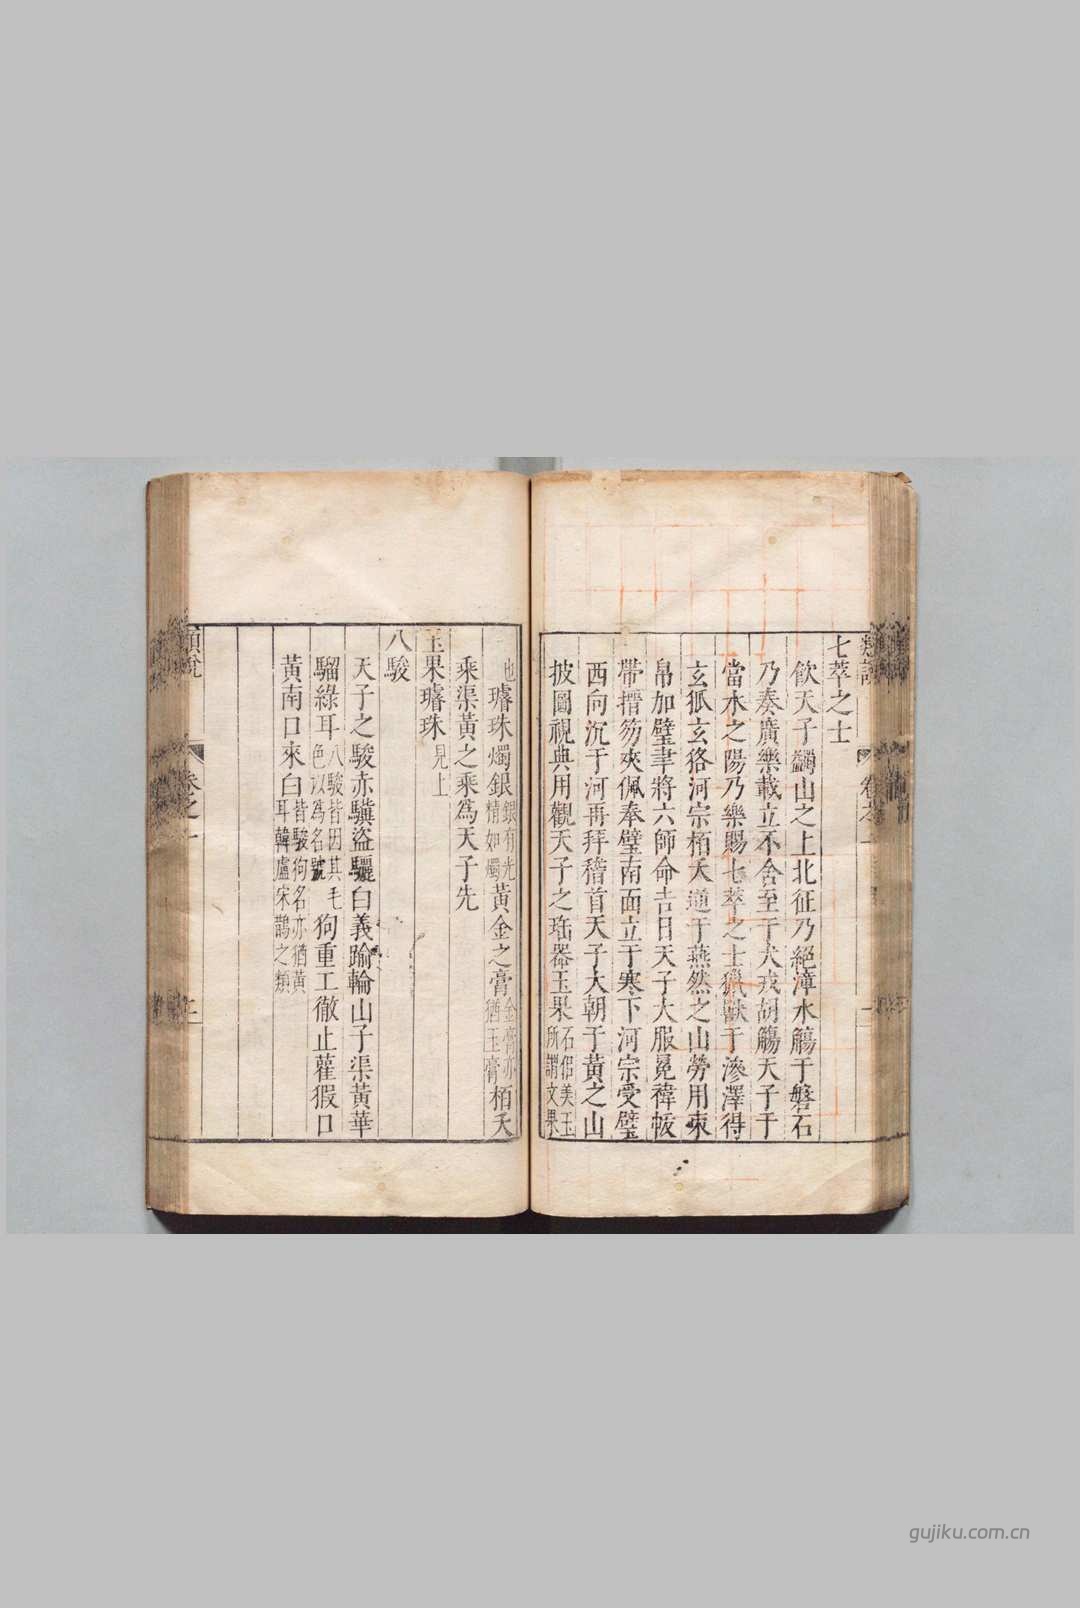 類說 卷之一
七萃之士
飲天子蠲山之上北征乃絕漳水觴于磐石
乃奏廣樂載立不舍至于犬戎胡觴天子于
當水之陽乃樂賜七萃之士獵獸于滲澤得
玄狐玄狢河宗栢夭逆于燕然之山勞用束
帛加璧聿將六師命吉日天子大服冕褘帗
帶搢笏夾佩奉璧南面立于寒下河宗受璧
西向沉于河再拜稽首天子大朝于黃之山
披圖視典用觀天子之珤器玉果石佀美玉所謂文果
也璿珠燭銀銀有光精如燭黃金之膏金膏亦猶玉膏栢夭
乘渠黃之乘爲天子先
玉果璿珠見上
八駿
天子之駿赤驥盜驪白義踰輪山子渠黃華
騮綠耳八駿皆因其毛色以爲名號狗重工徹止雚猳口
黃南口來白皆駿狗名亦猶黃耳韓盧宋鵲之類
類說 卷之一
gujiku.com.cn